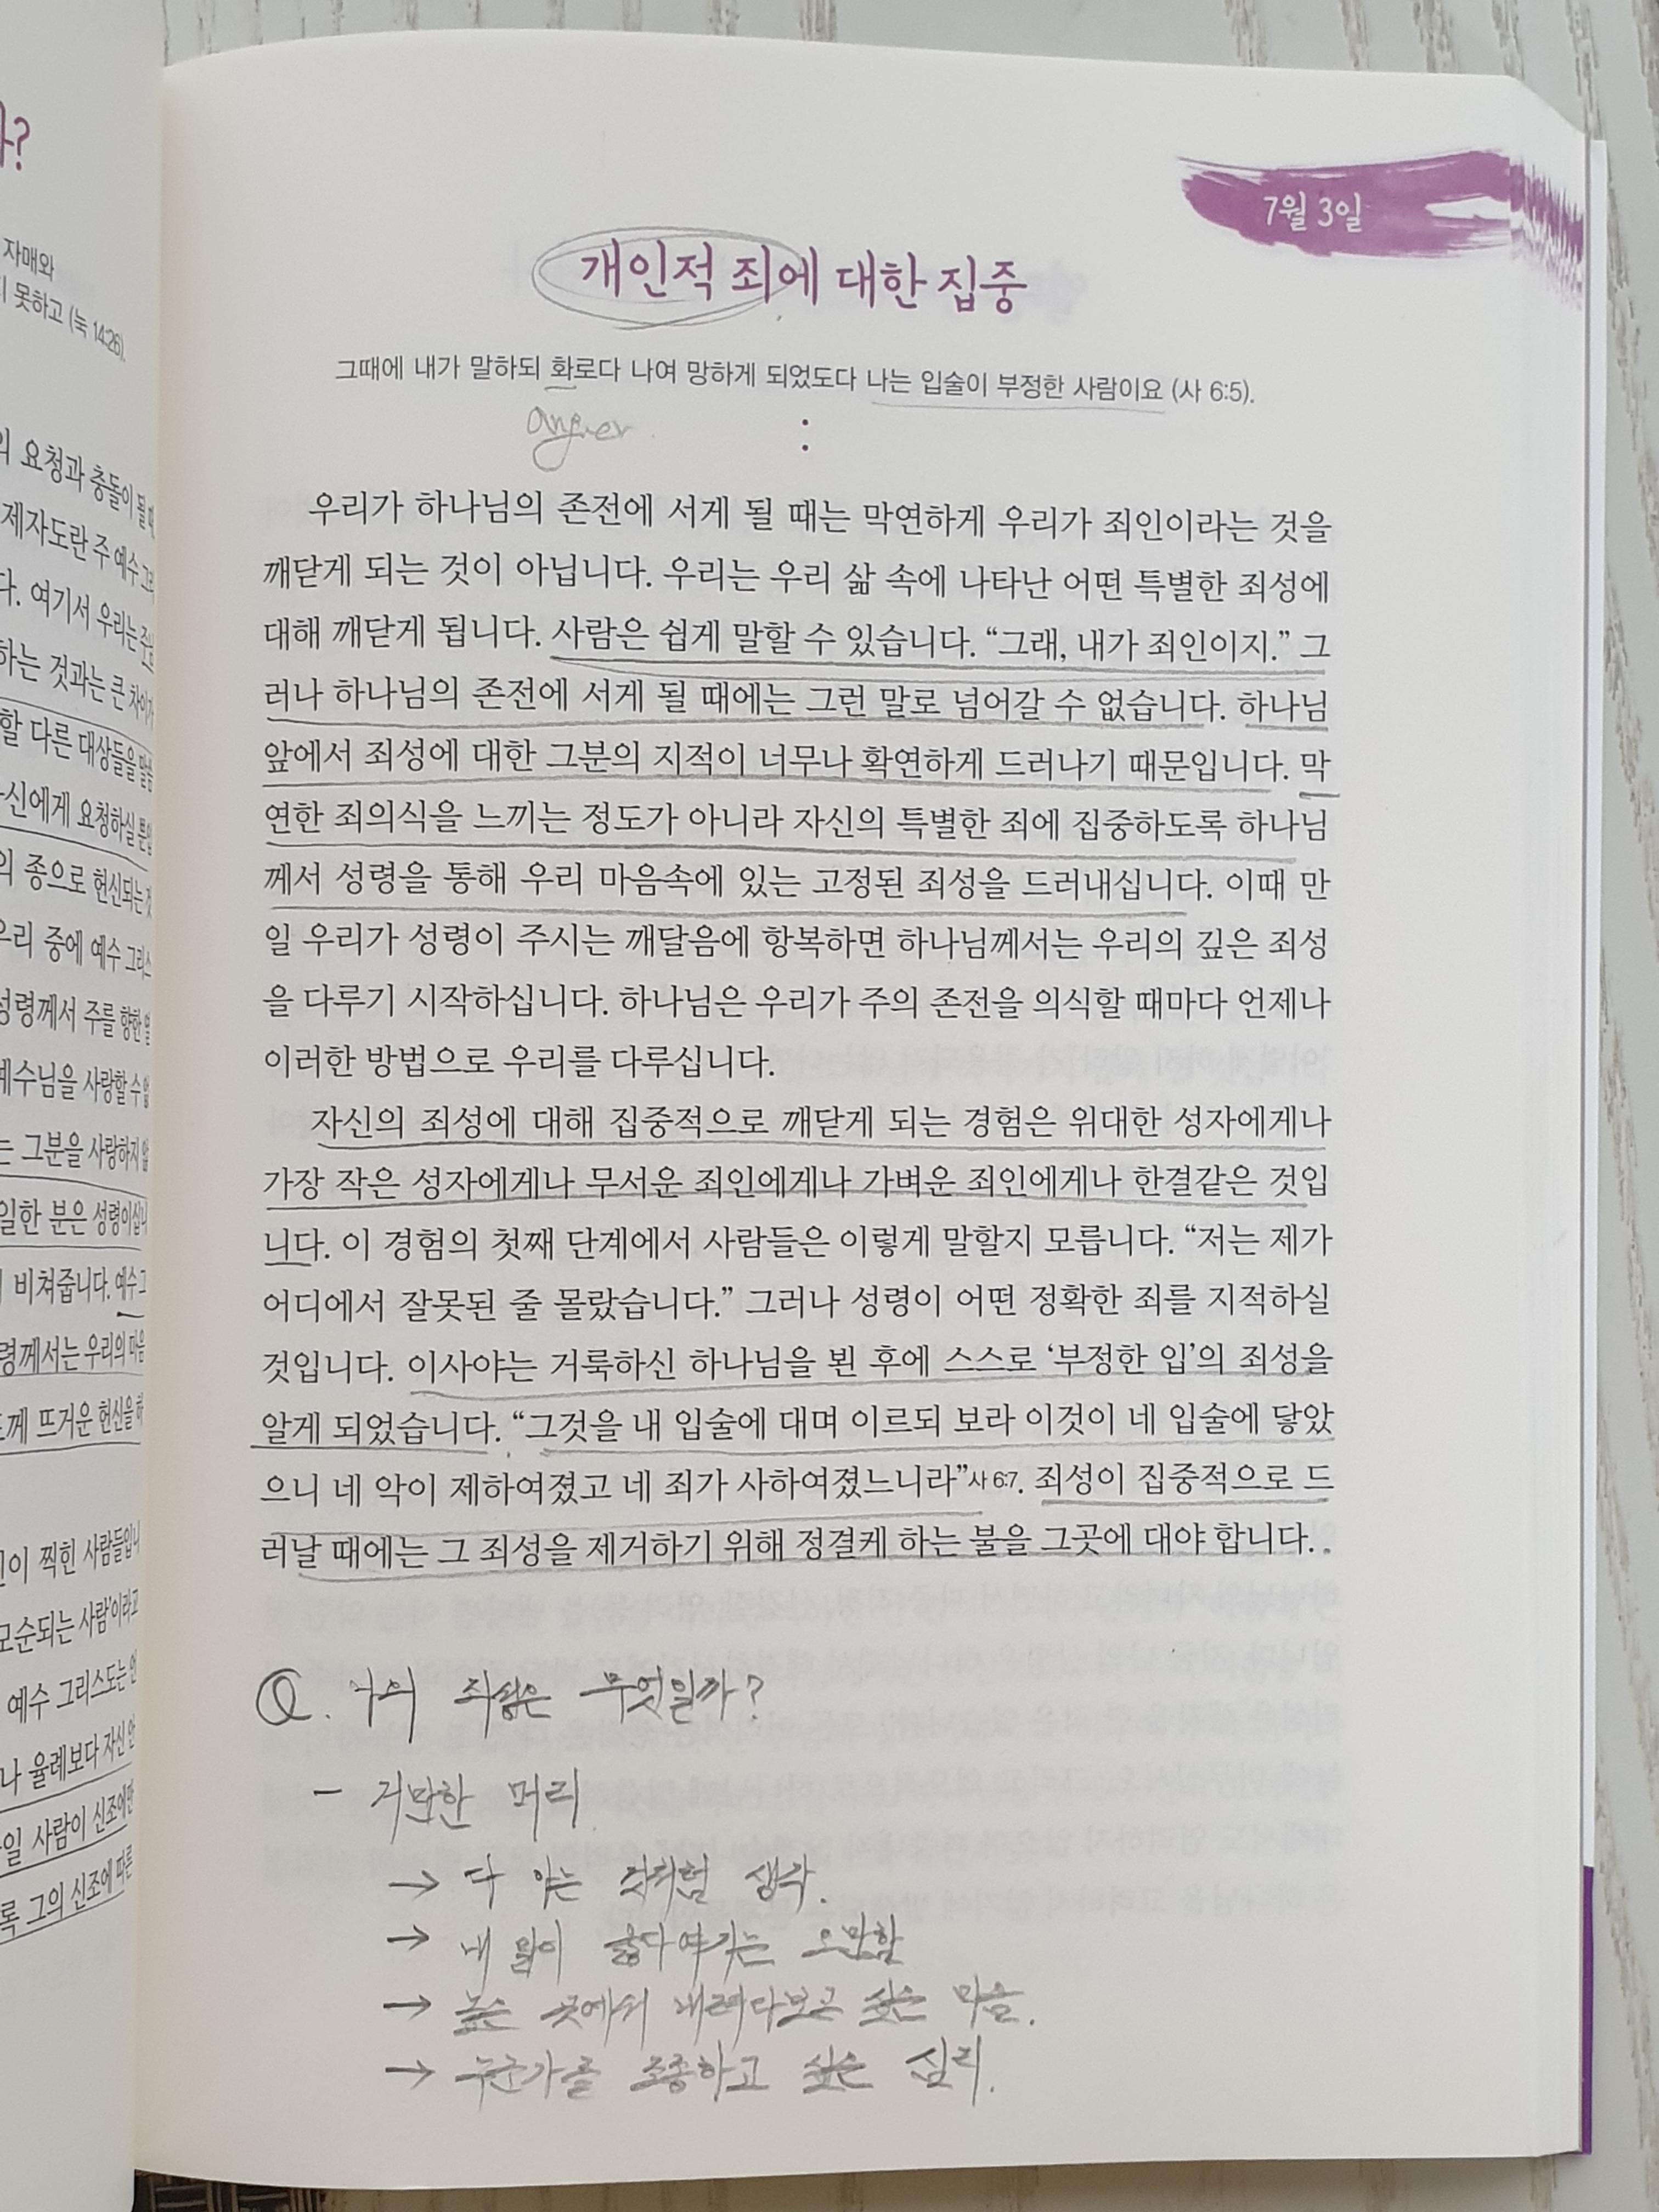 가?
자매와
지 못하고 (눅 14:26).
의 요청과 충돌이 될 때,
제자도란 주 예수 그리
다. 여기서 우리는
하는 것과는 큰 차이가
할 다른 대상들을 말씀
자신에게 요청하실
의 종으로 헌신되는 것
우리 중에 예수 그리스
성령께서 주를 향한 열
예수님을 사랑할 수 없
는 그분을 사랑하지 않
일한 분은 성령이십니
비쳐줍니다. 예수 그
령께서는 우리의 마음
뜨거운 헌신을 하
이 찍힌 사람들입니
모순되는 사람'이라고
예수 그리스도는
나 율례보다 자신
일 사람이 신조에만
록 그의 신조에 따른
7월 3일
개인적 죄에 대한 집중
그때에 내가 말하되 화로다 나여 망하게 되었도다 나는 입술이 부정한 사람이요 (사 6:5).
anger
우리가 하나님의 존전에 서게 될 때는 막연하게 우리가 죄인이라는 것을
깨닫게 되는 것이 아닙니다. 우리는 우리 삶 속에 나타난 어떤 특별한 죄성에
대해 깨닫게 됩니다. 사람은 쉽게 말할 수 있습니다. “그래, 내가 죄인이지.” 그
러나 하나님의 존전에 서게 될 때에는 그런 말로 넘어갈 수 없습니다. 하나님
앞에서 죄성에 대한 그분의 지적이 너무나 확연하게 드러나기 때문입니다. 막
연한 죄의식을 느끼는 정도가 아니라 자신의 특별한 죄에 집중하도록 하나님
께서 성령을 통해 우리 마음속에 있는 고정된 죄성을 드러내십니다. 이때 만
일 우리가 성령이 주시는 깨달음에 항복하면 하나님께서는 우리의 깊은 죄성
을 다루기 시작하십니다. 하나님은 우리가 주의 존전을 의식할 때마다 언제나
이러한 방법으로 우리를 다루십니다.
자신의 죄성에 대해 집중적으로 깨닫게 되는 경험은 위대한 성자에게나
가장 작은 성자에게나 무서운 죄인에게나 가벼운 죄인에게나 한결같은 것입
니다. 이 경험의 첫째 단계에서 사람들은 이렇게 말할지 모릅니다. “저는 제가
어디에서 잘못된 줄 몰랐습니다.” 그러나 성령이 어떤 정확한 죄를 지적하실
것입니다. 이사야는 거룩하신 하나님을 뵌 후에 스스로 ‘부정한 입’의 죄성을
알게 되었습니다. “그것을 내 입술에 대며 이르되 보라 이것이 네 입술에 닿았
으니 네 악이 제하여졌고 네 죄가 사하여졌느니라”사 6:7. 죄성이 집중적으로 드
러날 때에는 그 죄성을 제거하기 위해 정결케 하는 불을 그곳에 대야 합니다.
Q. 나의 죄성은 무엇일까?
- 거만한 머리
→ 다 아는 것처럼 생각.
→ 내 말이 옳다 여기는 오만함
→ 높은 곳에서 내려다보고 싶은 마음.
→ 누군가를 조종하고 싶은 심리.